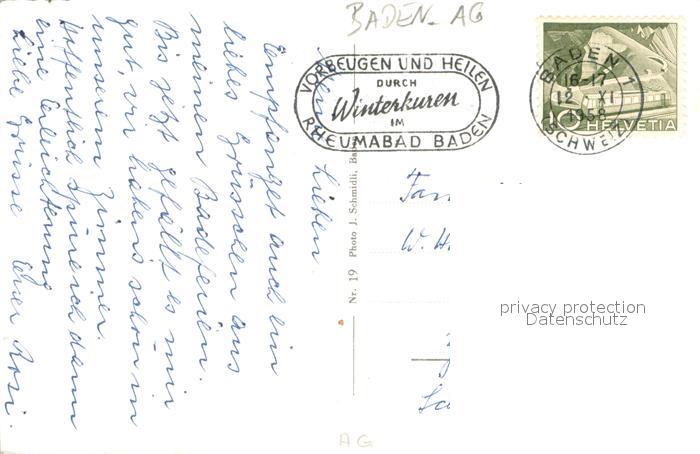 BADEN - AG
VORBEUGEN UND HEILEN
DURCH
Winterkuren
IM
RHEUMABAD BADEN
BADEN 1
16-17
12. XI
1958
(SCHWEIZ)
10 HELVETIA
Meine Lieben.
Empfanget auch ein
liebes Grüsschen aus
meinen Badeferien.
Bis jetzt gefällt es mir
gut, wir haben's schön in
unserem Zimmer.
Hoffentlich spüre ich dann
eine Erleichterung
Liebe Grüsse Euer Rosi.
Nr. 19 Photo J. Schmidli, Ba
Fam
W. H
privacy protection
Datenschutz
AG